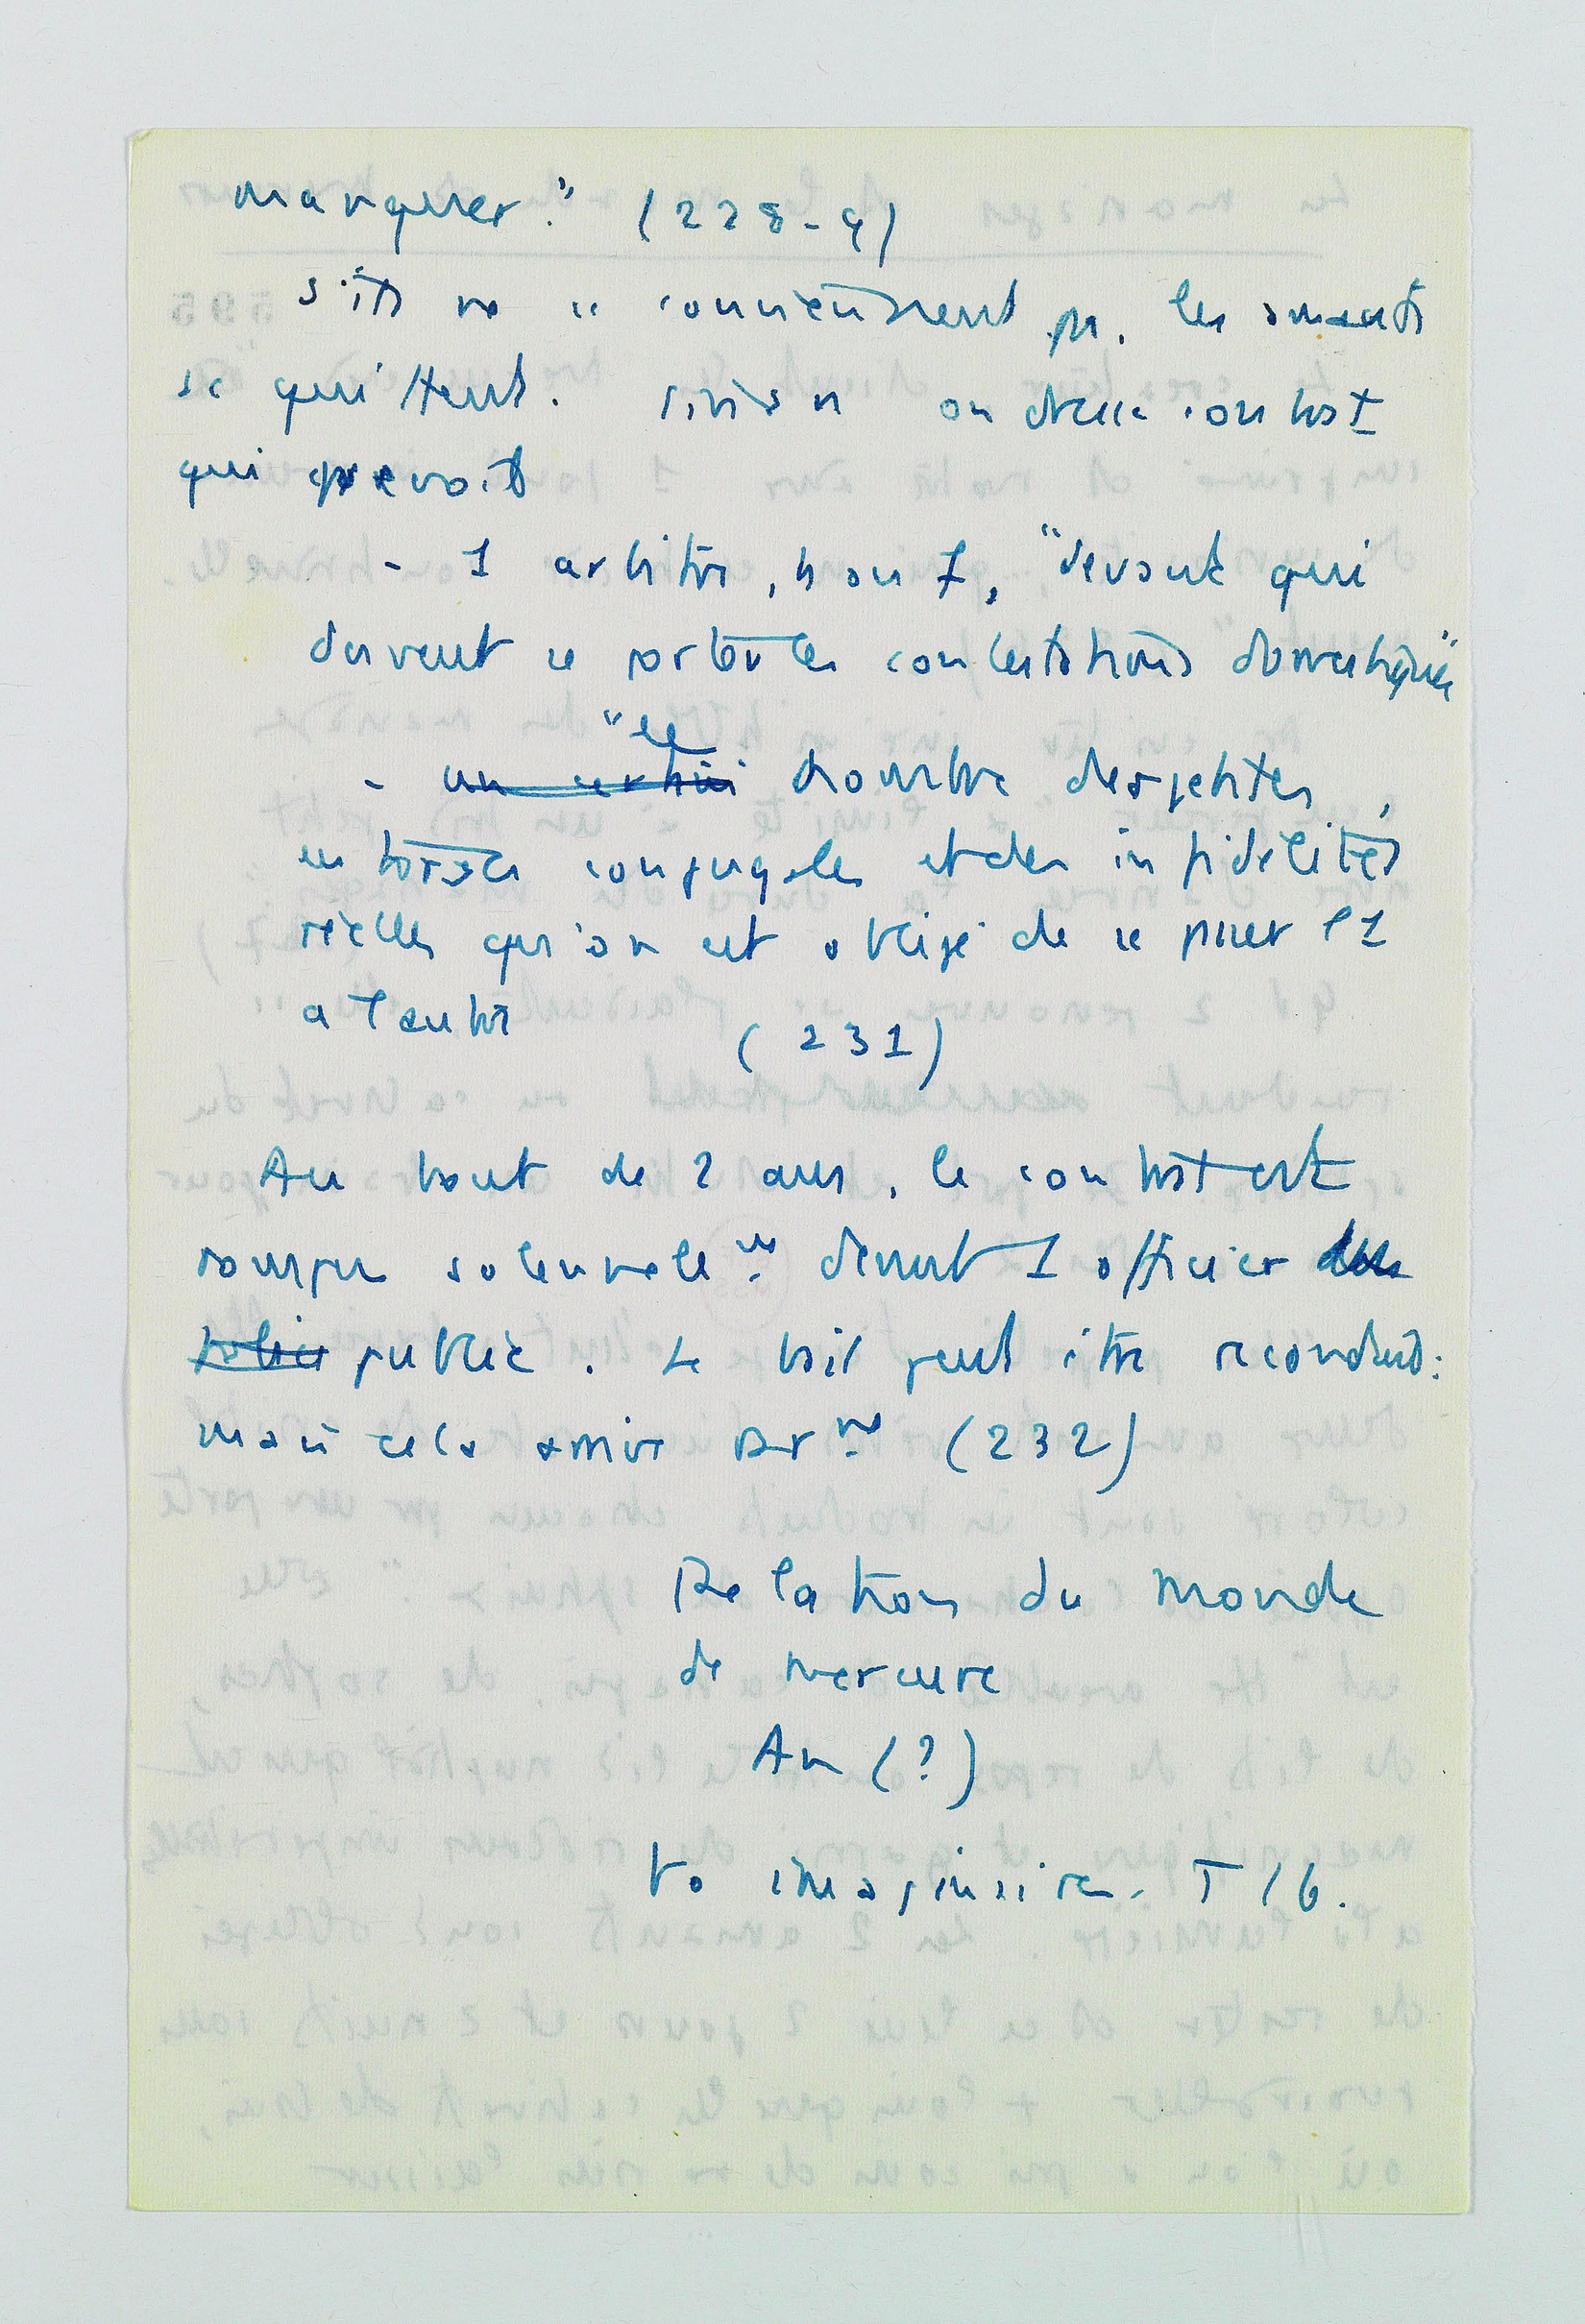 manquer." (228-9)
S'ils ne se conviennent pas, les amants
se quittent. Sinon on dresse contrat
qui prevoit
- 1 arbitre, nou 7, "devant qui
doivent se porter les contestations domestiques"
"le
- un certain nombre des petites
entorses conjugales et des infidélités
réelles qu'on est obligé de se passer l'1
a l'autre (231)
Au bout de 2 ans, le contrat est
rompu solennelle^nt devant 1 officier des
public. Le bail peut être reconduit:
mais cela arrive rar^nt (232)
Relation du Monde
de Mercure
An (?)
Vo imaginaires. T 16.